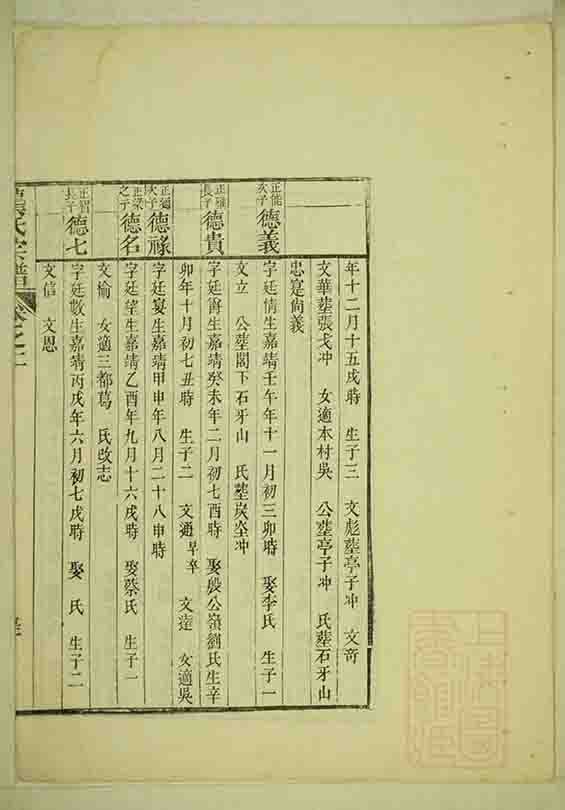 年十二月十五戌時 生子三 文彪塟亭子冲 文奇
文華塟張戈冲 女適本村吳 公塟亭子冲 氏塟石牙山
忠寔尙義
正能次子 德義 字廷情生嘉靖壬午年十一月初三卯時 娶李氏 生子一
文立 公塟閣下石牙山 氏塟炭冲
正羅長子 德貴 字廷爵生嘉靖癸未年二月初七酉時 娶殷公嶺劉氏生辛
卯年十月初七丑時 生子二 文通早卒 文達 女適吳
次子 德祿 字廷宴生嘉靖甲申年八月二十八申時
正梁之子 德名 字廷望生嘉靖乙酉年九月十六戌時 娶蔡氏 生子一
文愉 女適三都葛 氏改志
正習長子 德七 字廷數生嘉靖丙戌年六月初七戌時 娶 氏 生子二
文信 文恩
張氏宗譜 卷之二